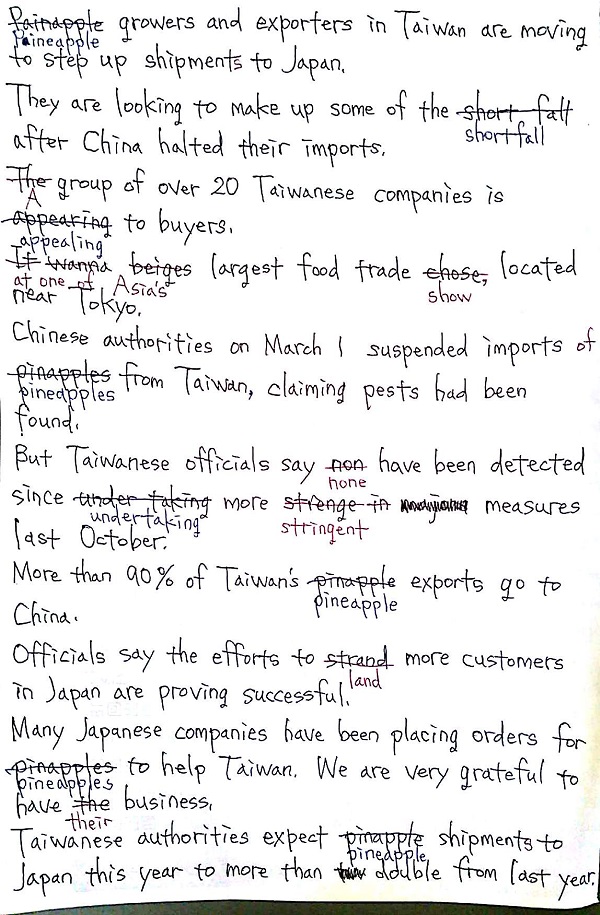 Painapple growers and exporters in Taiwan are moving
Paineapple
to step up shipments to Japan.
They are looking to make up some of the short fall
shortfall
after China halted their imports.
The group of over 20 Taiwanese companies is
A
appearing to buyers.
appealing
It wanna beiges largest food trade chose, located
at one of Asia's show
near Tokyo.
Chinese authorities on March 1 suspended imports of
pinapples from Taiwan, claiming pests had been
pineapples
found.
But Taiwanese officials say non have been detected
none
since under taking more strenge in measures
undertaking stringent
last October.
More than 90% of Taiwan's pinapple exports go to
pineapple
China.
Officials say the efforts to strand more customers
land
in Japan are proving successful.
Many Japanese companies have been placing orders for
pinapples to help Taiwan. We are very grateful to
pineapples
have the business.
their
Taiwanese authorities expect pinapple shipments to
pineapple
Japan this year to more than double from last year.